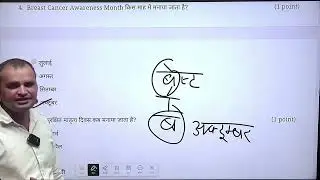 4. Breast Cancer Awareness Month किस माह में मनाया जाता है?
(1 point)
जुलाई
अगस्त
सितम्बर
मातृत्व दिवस कब मनाया जाता है?
(1 point)
ब्रेस्ट
ब
अक्टूबर